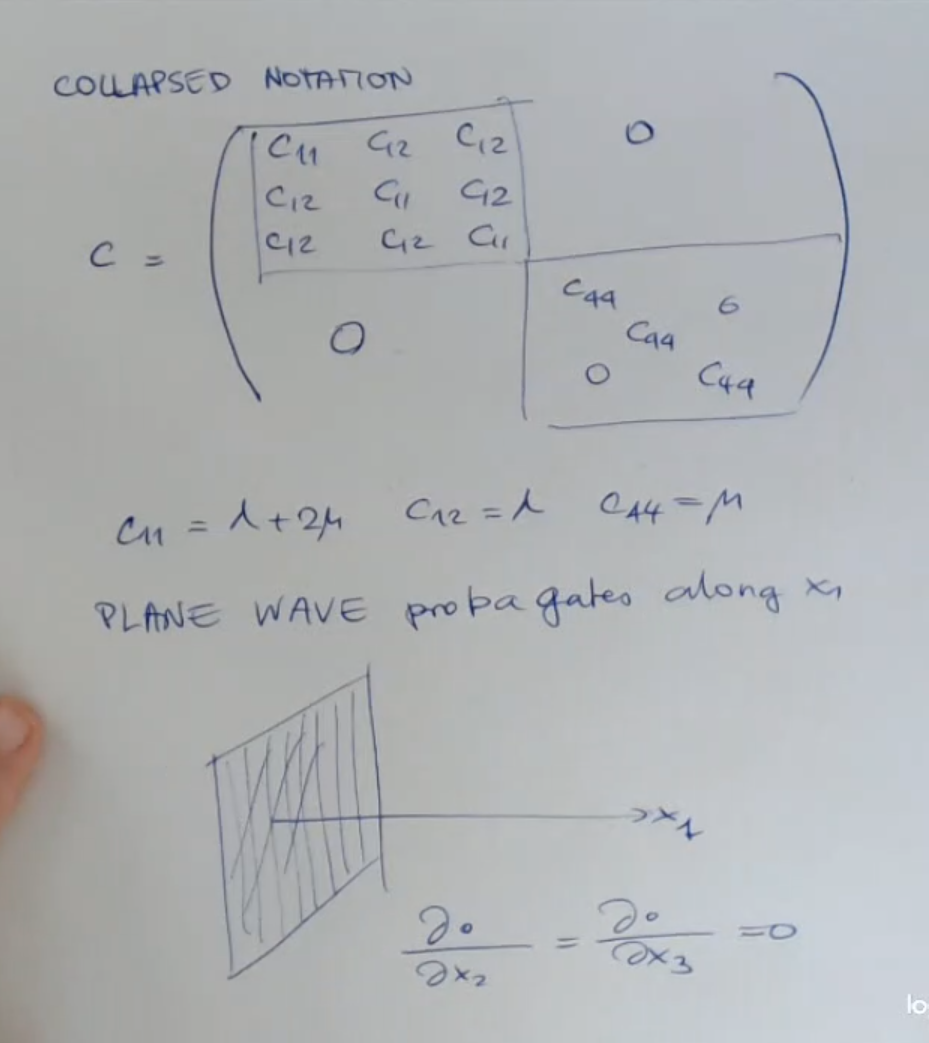 COLLAPSED NOTATION
C11 C12 C12 0
C12 C11 C12
C = C12 C12 C11
C44 0
0 C44
0 C44
C11 = λ+2μ C12 = λ C44 = μ
PLANE WAVE probagates along x1
x1
∂• / ∂x2 = ∂• / ∂x3 = 0
lo